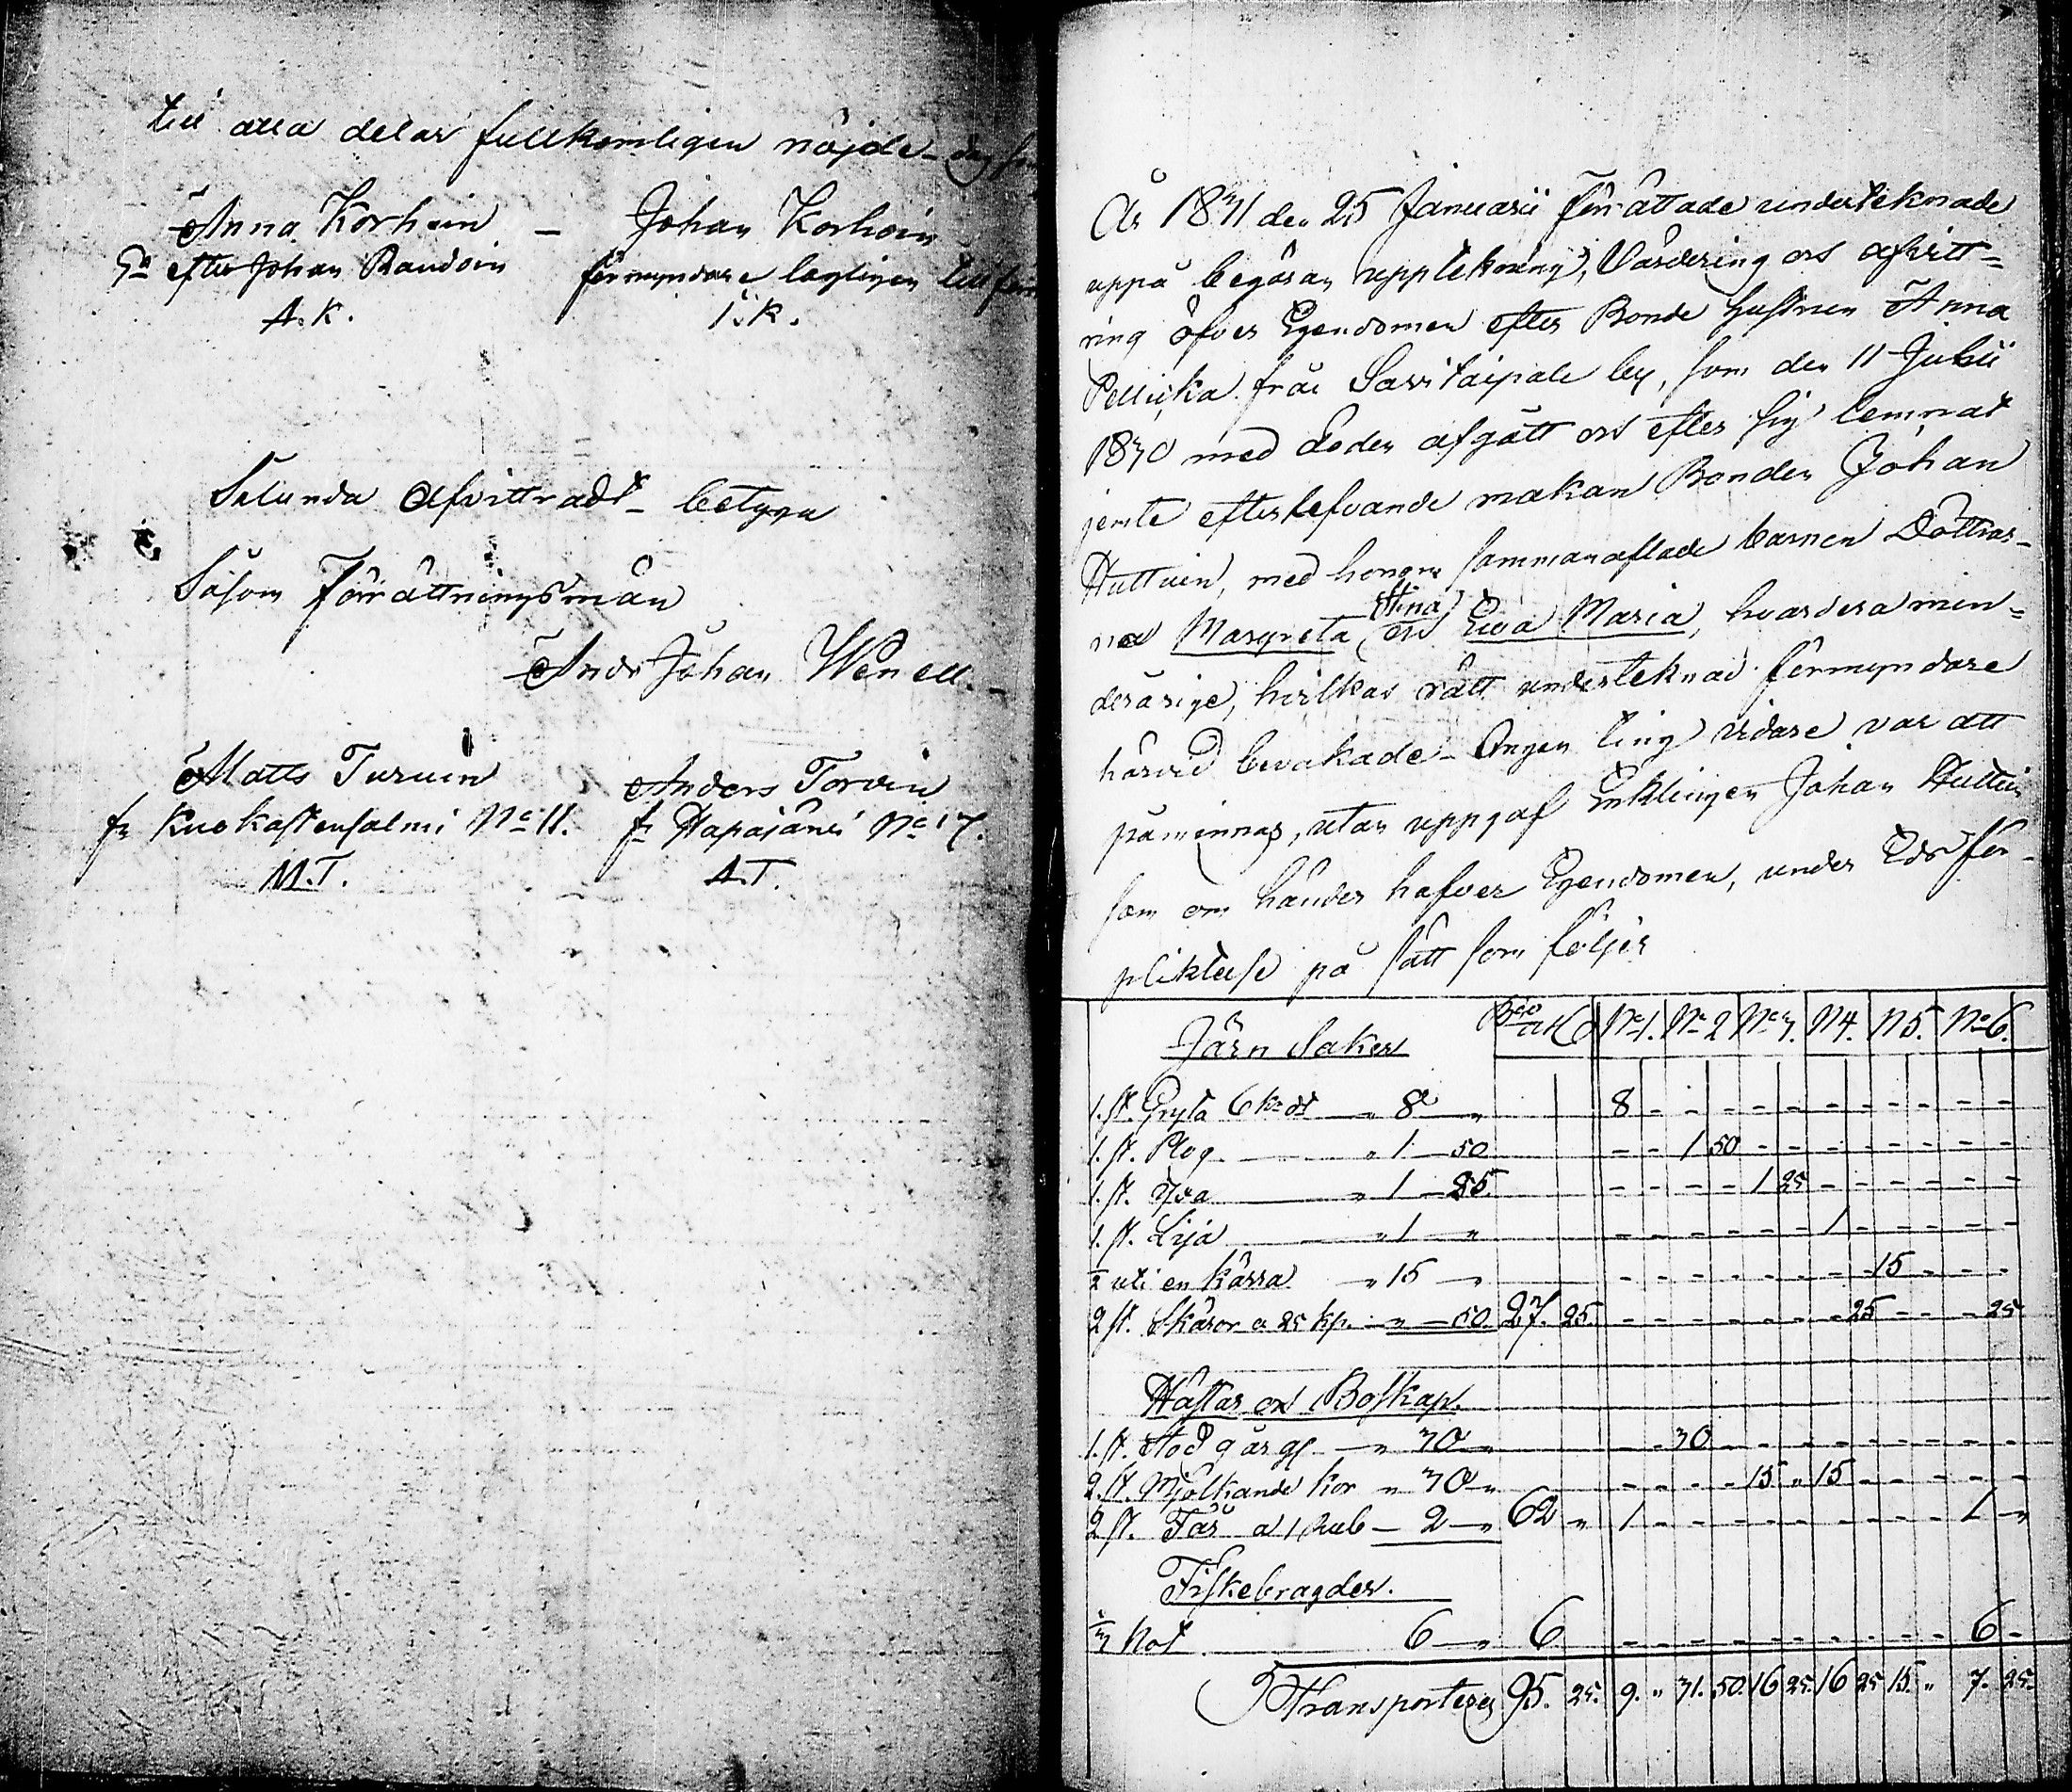 till alla delar fullkomligen nöjde – dag som
Anna Korhoin – Johan Korhoin
Ea efter Johan Raudoin förmyndare lagligen till
A.K. J.K.
Sålunda Afvittradt – betyga
Såsom Förrättningsmän
Ands Johan Wenell. –
Matts Turuin Anders Torvin
fr Kuokastensalmi No 11. fr Hapajärvi No 17.
M.T. A.T.
År 1831 den 25 Januarii Förrättade underteknade
uppå begäran uppteknings, Värdering och afvitt=
ring öfver Egendomen efter Bonde hustrun Anna
Pellicka från Savitaipale by, som den 11 Julii
1830 med döden afgått och efter sig lemnat
jemte efterlefvande makan Bonden Johan
Huttuin, med honom sammanaflade barnen Döttrar–
na Margreta, Stina och Eva Maria, hvardera min=
derårige, hvilkas rätt underteknad förmyndare
härvid bevakade – Ingen ting vidare var att
påminnas, utan uppgaf Enklingen Johan Huttuin
som om händer hafver Egendomen, under Eds för–
pliktelse på sätt som följer
Järn Saker Beo a R No 1. No 2 No 3. N 4. N 5. No 6.
1. st. Gryta 6 k:r dt – „ 8 „ 8 –
1. st. Plog – „ 1 – 50 1 50
1. st. Yxa – „ 1 – 25. 1 25
1. st. Lija – „ 1 – „ 1
½ uti en kärra – „ 15 – „ 15
2 st. Skäror a 25 kp. – „ – 50. 27. 25. 25 25
Hästar och Boskap.
1. st. Stod 9 år gl. – „ 30 „ 30
2. st. Mjölkande kor „ 30 „ 15 „ 15
2 st. Får a 1 Rub – 2 – „ 62 „ 1 1 „
Fiskebragder.
⅓ Not 6 – „ 6 6 –
Transporteres 95. 25. 9. „ 31. 50. 16 25. 16 25 15. „ 7. 25.